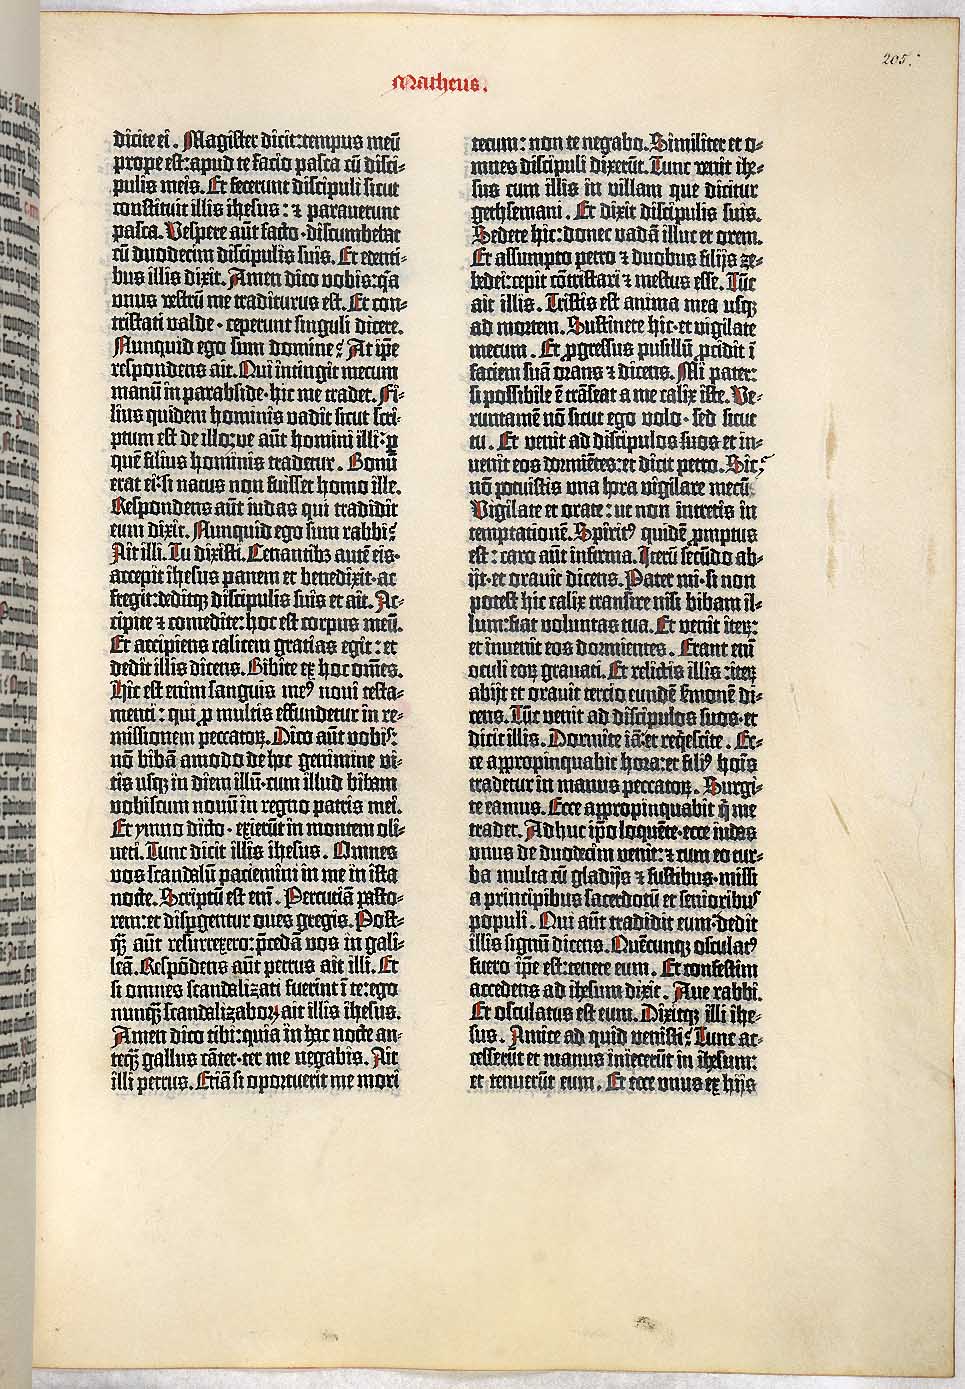 205.
Matheus.
dicite ei. Magister dicit: tempus meū
prope est: apud te facio pasca cū disci-
pulis meis. Et fecerunt discipuli sicut
constituit illis ihesus: ⁊ paraverunt
pasca. Vespere aūt facto· discumbebat
cū duodecim discipulis suis. Et edenti-
bus illis dixit. Amen dico vobis: q̄a
unus vestrū me traditurus est. Et con-
tristati valde· ceperunt singuli dicere.
Nunquid ego sum domine? At ip̄e
respondens ait. Qui intingit mecum
manū in parabside· hic me tradet. Fi-
lius quidem hominis vadit sicut scri-
ptum est de illo: ve aūt homini illi: ꝑ
quē filius hominis tradetur. Bonū
erat ei· si natus non fuisset homo ille.
Respondens aūt iudas qui tradidit
eum dixit. Nunquid ego sum rabbi?
Ait illi. Tu dixisti. Cenantibꝫ autē eis·
accepit ihesus panem et benedixit· ac
fregit: deditqꝫ discipulis suis et ait. Ac-
cipite ⁊ comedite: hoc est corpus meū.
Et accipiens calicem gratias egit: et
dedit illis dicens. Bibite ex hoc om̄es.
Hic est enim sanguis meꝰ novi testa-
menti: qui ꝓ multis effundetur in re-
missionem peccatoꝝ. Dico aūt vobis:
nō bibā amodo de hoc genimine vi-
tis usqꝫ in diem illū· cum illud bibam
vobiscum novū in regno patris mei.
Et ymno dicto· exierūt in montem oli-
veti. Tunc dicit illis ihesus. Omnes
vos scandalū paciemini in me in ista
nocte. Scriptū est em̄. Percuciā pasto-
rem: et dispergentur oves gregis. Post-
qꝫ̄ aūt resurrexero: p̄cedā vos in gali-
leā. Respōdens aūt petrus ait illi. Et
si omnes scandalizati fuerint ī te: ego
nunqꝫ̄ scandalizabor. ait illis ihesus.
Amen dico tibi: quia in hac nocte an-
teqꝫ̄ gallus cātet· ter me negabis. Ait
illi petrus. Etiā si oportuerit me mori
tecum: non te negabo. Similiter et o-
mnes discipuli dixerūt. Tunc venit ihe-
sus cum illis in villam que dicitur
gethsemani. Et dixit discipulis suis.
Sedete hic: donec vadā illuc et orem.
Et assumpto petro ⁊ duobus filijs ze-
bedei: cepit cōtristari ⁊ mestus esse. Tūc
ait illis. Tristis est anima mea usqꝫ
ad mortem. Sustinete hic· et vigilate
mecum. Et ꝓgressus pusillū ꝓcidit ī
faciem suā orans ⁊ dicens. Mi pater:
si possibile ē trāseat a me calix iste. Ve-
runtamē nō sicut ego volo· sed sicut
tu. Et venit ad discipulos suos et in-
venit eos dormiētes: et dicit petro. Sic?
nō potuistis una hora vigilare mecū.
Vigilate et orate: ut non intretis in
temptationē. Spiritꝰ quidē ꝓmptus
est: caro aūt infirma. Iterū secūdo ab-
ijt· et oravit dicens. Pater mi· si non
potest hic calix transire nisi bibam il-
lum: fiat voluntas tua. Et venit iteꝝ:
et invenit eos dormientes. Erant em̄
oculi eoꝝ gravati. Et relictis illis: iteꝝ
abijt et oravit tercio eundē s̄monē di-
cens. Tūc venit ad discipulos suos· et
dicit illis. Dormite iā· et reqͥescite. Ec-
ce appropinquabit hora: et filiꝰ hoīs
tradetur in manus peccatoꝝ. Surgi-
te eamus. Ecce appropinquabit qͥ me
tradet. Adhuc ip̄o loquēte· ecce iudas
unus de duodecim venit: ⁊ cum eo tur-
ba multa cū gladijs ⁊ fustibus· missi
a principibus sacerdotū et senioribus
populi. Qui aūt tradidit eum· dedit
illis signū dicens. Quēcunqꝫ osculatꝰ
fuero ip̄e est: tenete eum. Et confestim
accedens ad ihesum dixit. Ave rabbi.
Et osculatus est eum. Dixitqꝫ illi ihe-
sus. Amice ad quid venisti? Tunc ac-
cesserūt et manus iniecerūt in ihesum:
et tenuerūt eum. Et ecce unus ex hijs